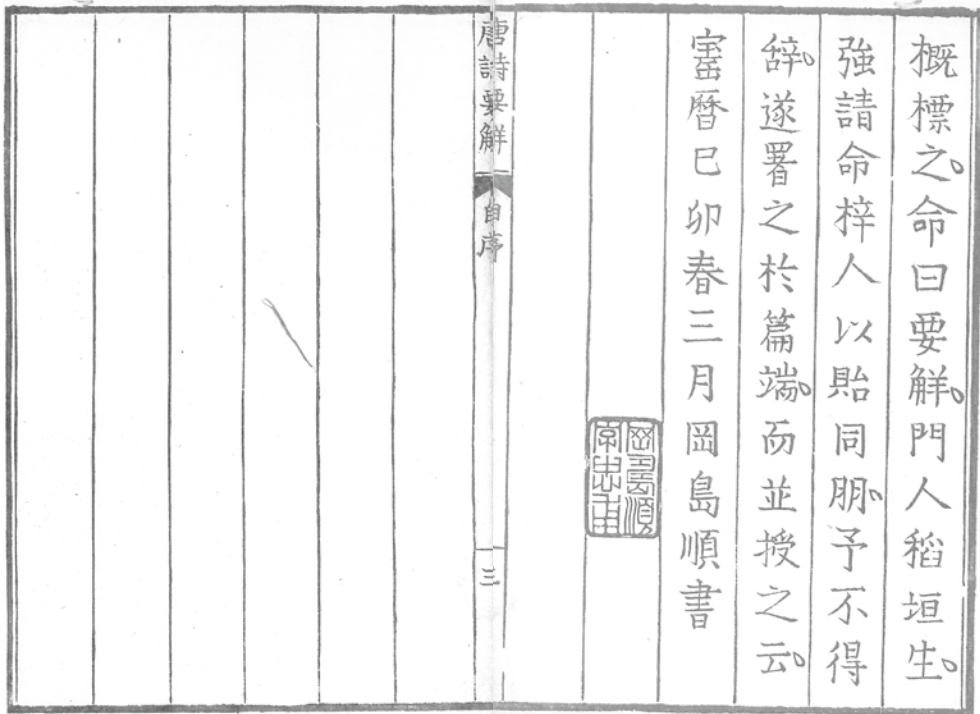 概標之。命曰要解。門人稻垣生。
強請命梓人以貽同朋。予不得
辭。遂署之於篇端。而並授之云。
寶曆已卯春三月岡島順書
岡島順
唐詩要解
自序
三